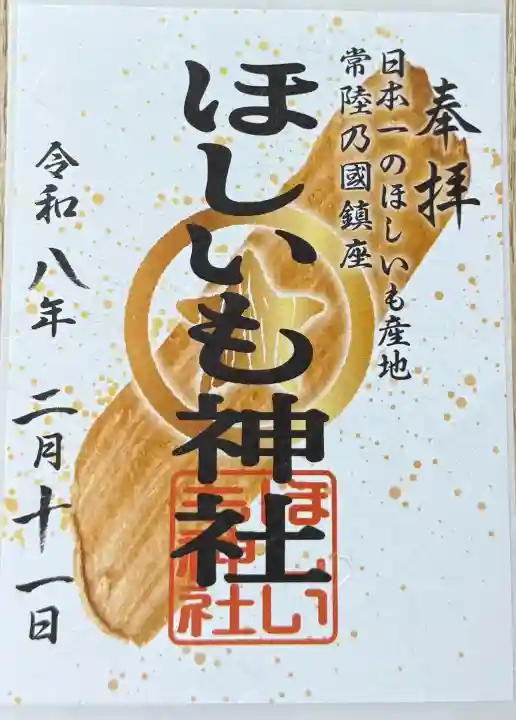 奉拝
日本一のほしいも産地
常陸乃國鎮座
ほしいも神社
ほしい
も神社
令和八年 二月十一日